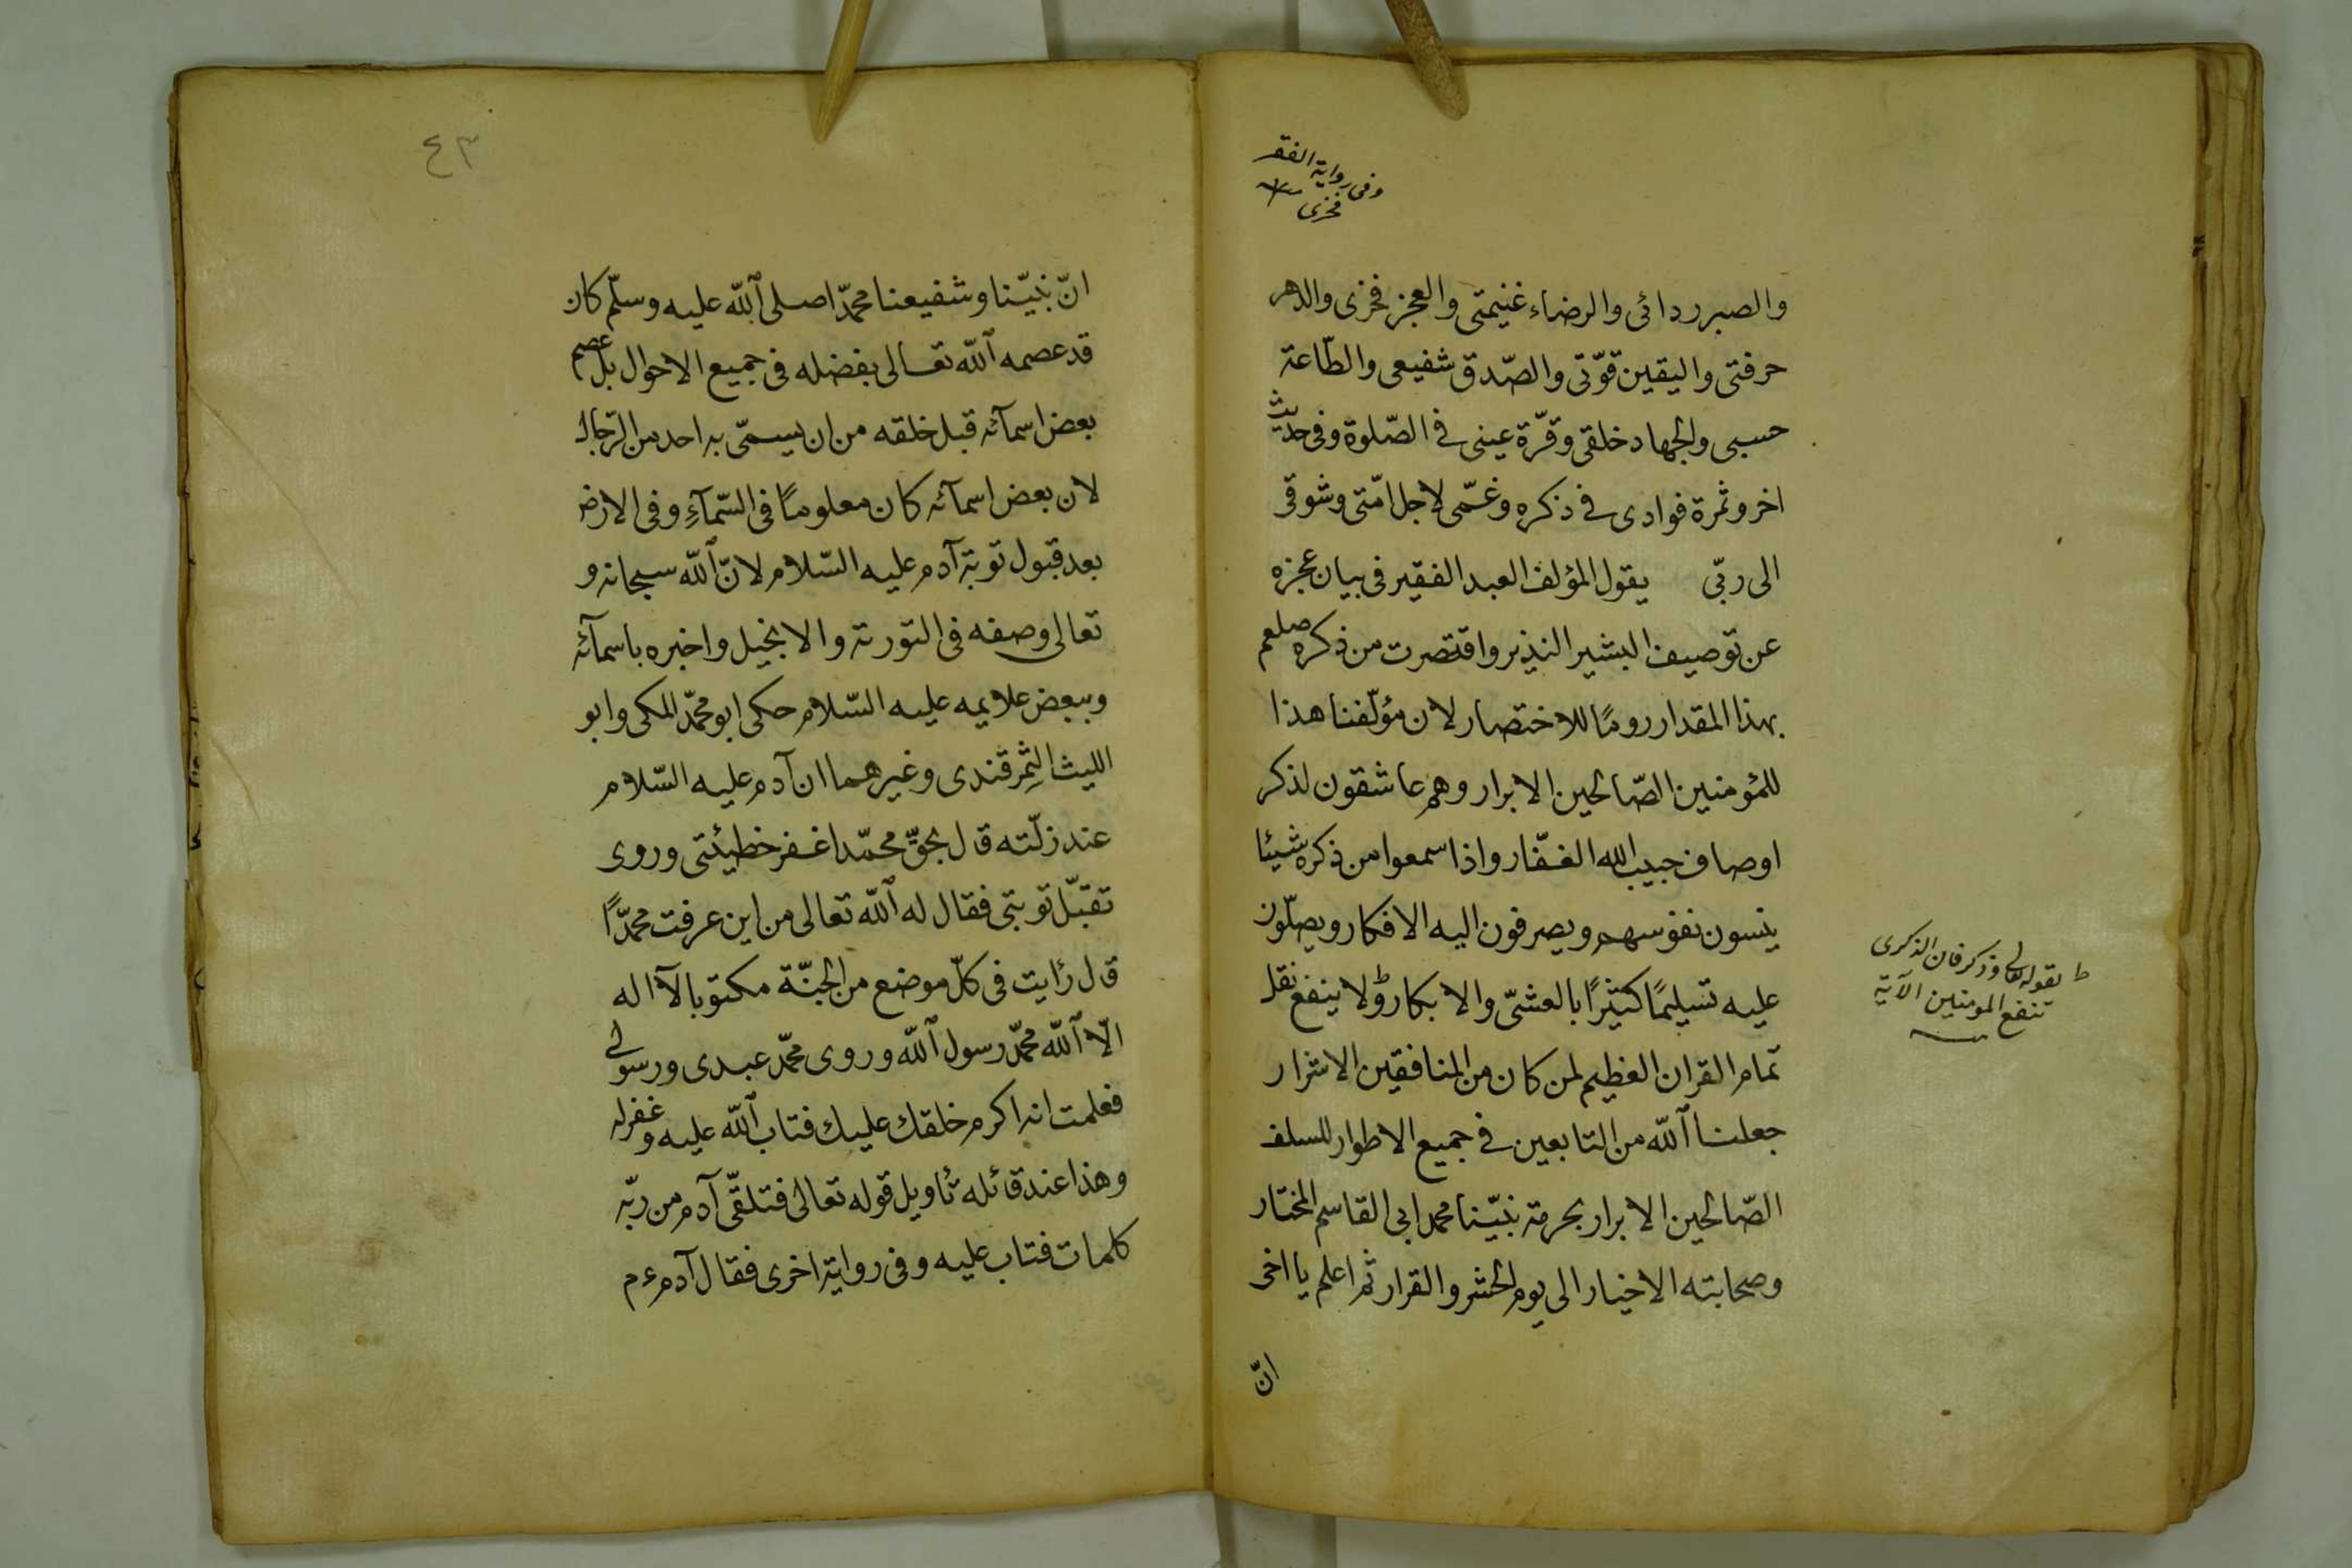 وفى رواية الفقر
فخرى
والصبر ردائى والرضاء غنيمتى والعجز فخرى والزهد
حرفتى واليقين قوّتى والصّدق شفيعى والطّاعة
حسبى والجهاد خلقى وقرّة عينى فى الصّلوة وفى حديث
اخر وثمرة فوادى فى ذكره وغمّى لاجل امّتى وشوقى
الى ربّى يقول المؤلف العبد الفقير فى بيان عجزه
عن توصيف البشير النذير واقتصرت من ذكره صلعم
بهذا المقدار رومًا للاختصار لان مؤلّفنا هذا
للمؤمنين الصّالحين الابرار وهم عاشقون لذكر
اوصاف حبيب الله الغفّار واذا سمعوا من ذكره شيئا
ينسون نفوسهم ويصرفون اليه الافكار ويصلّون
عليه تسليمًا كثيرًا بالعشىّ والابكار ط ولا ينفع نقل
تمام القران العظيم لمن كان من المنافقين الاشرار
جعلنا الله من التابعين فى جميع الاطوار للسلف
الصّالحين الابرار بحرمة نبيّنا محمد ابى القاسم المختار
وصحابته الاخيار الى يوم الحشر والقرار ثم اعلم يا اخى
انّ
ط لقوله تعالى وذكر فان الذكرى
تنفع المومنين الآية
٤٣
انّ نبيّنا وشفيعنا محمّدا صلى الله عليه وسلّم كان
قد عصمه الله تعالى بفضله فى جميع الاحوال بل عصم
بعض اسمآئه قبل خلقه من ان يسمّى به احد من الرّجال
لان بعض اسمآئه كان معلومًا فى السّمآءِ وفى الارض
بعد قبول توبة آدم عليه السّلام لانّ الله سبحانه و
تعالى وصفه فى التورية والانجيل واخبره باسمآئه
وببعض علايمه عليه السّلام حكى ابو محمّد المكى وابو
الليث الثمرقندى وغيرهما ان آدم عليه السّلام
عند زلّته قال بحقّ محمّد اغفر خطيئتى وروى
تقبّل توبتى فقال له الله تعالى من اين عرفت محمّدًا
قال رأيت فى كلّ موضع من الجنّة مكتوبا لآ اله
الّا الله محمّد رسول الله وروى محمّد عبدى ورسولى
فعلمت انه اكرم خلقك عليك فتاب الله عليه وغفر له
وهذا عند قائله تأويل قوله تعالى فتلقّى آدم من ربّه
كلمات فتاب عليه وفى رواية اخرى فقال آدم ع م